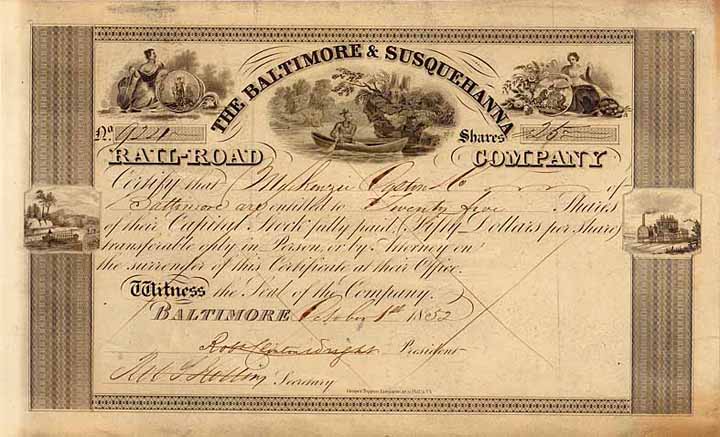 THE BALTIMORE & SUSQUEHANNA
No. 9221
Shares 25
RAIL-ROAD COMPANY
Certify that Mackenzie & Co of
Baltimore are entitled to Twenty five Shares
of their Capital Stock fully paid, (Fifty Dollars per share)
transferable only in Person, or by Attorney on
the surrender of this Certificate at their Office.
Witness the Seal of the Company.
BALTIMORE October 1st 1852
Robt Clinton Wright President
Secretary